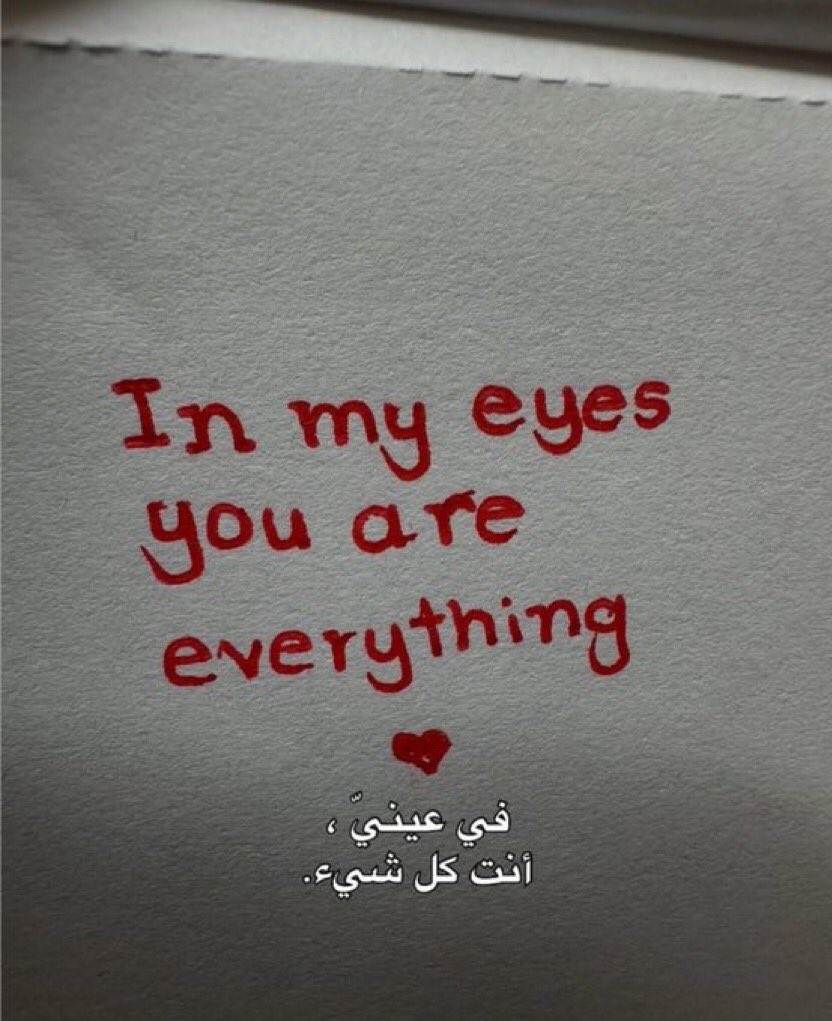 In my eyes
you are
everything
في عينيّ ،
أنت كل شيء.